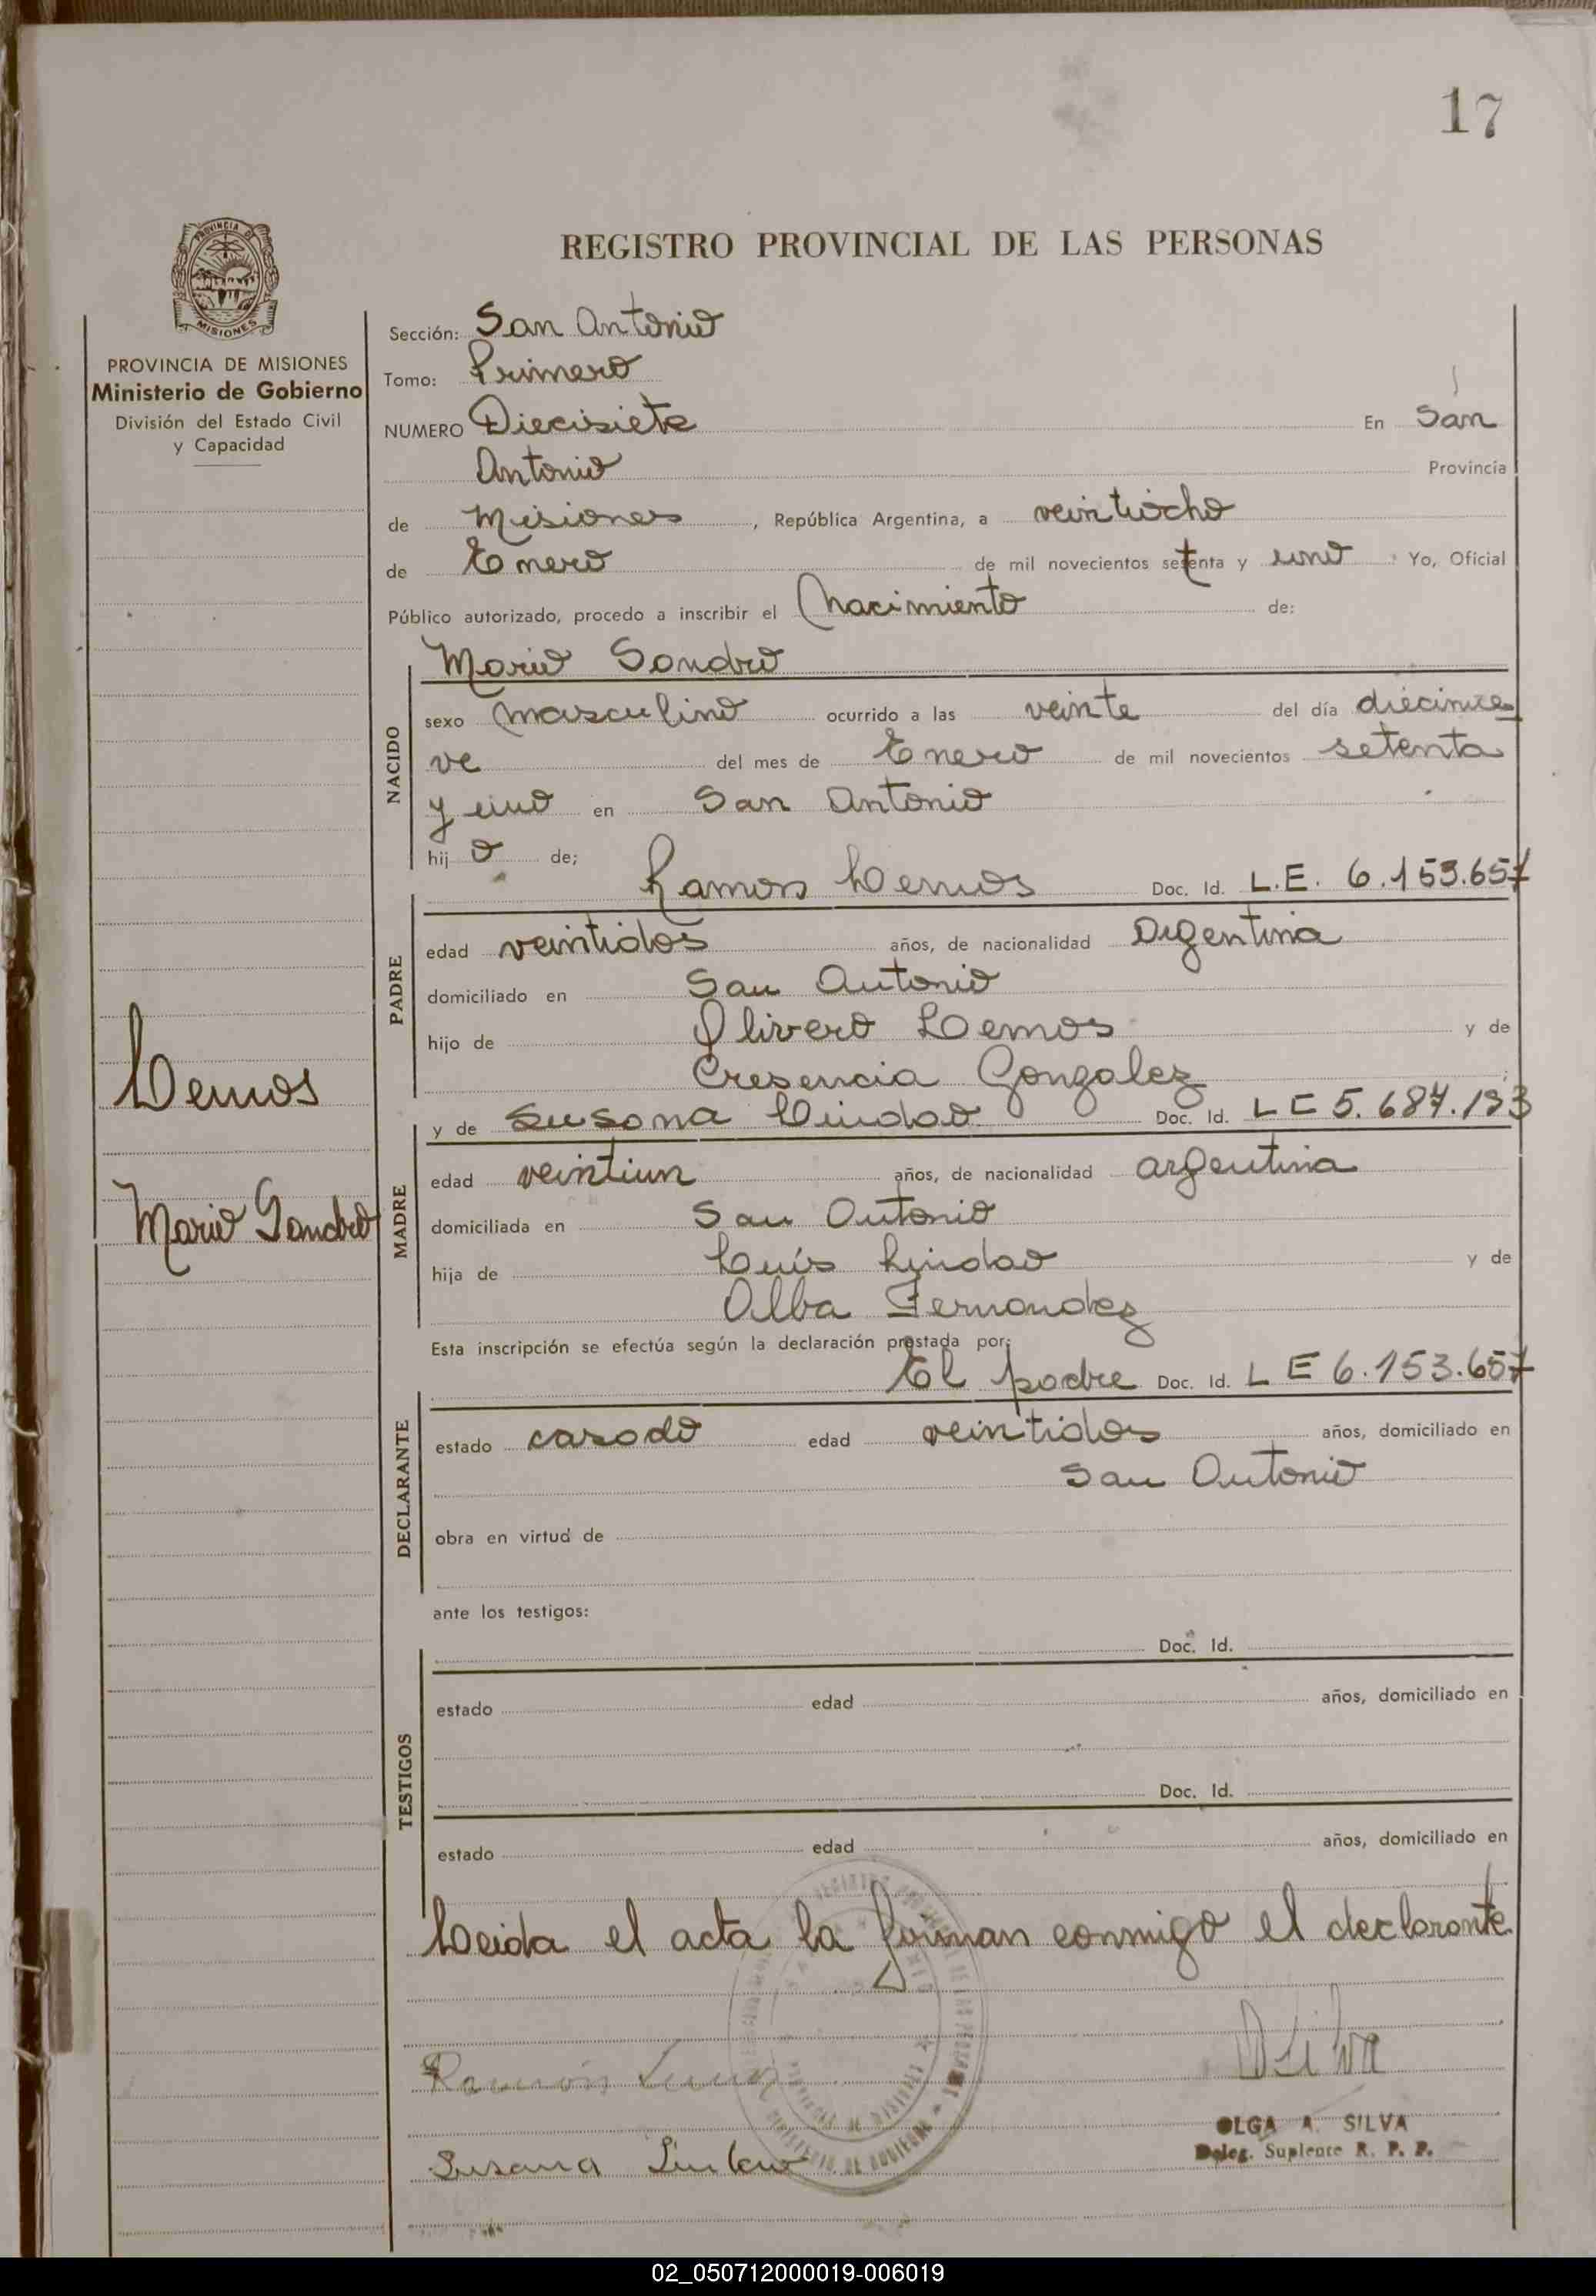 17
REGISTRO PROVINCIAL DE LAS PERSONAS
PROVINCIA DE MISIONES
Ministerio de Gobierno
División del Estado Civil
y Capacidad
Sección: San Antonio
Tomo: Primero
NUMERO Diecisiete En San
Antonio Provincia
de Misiones, República Argentina, a veintiocho
de Enero de mil novecientos setenta y uno Yo, Oficial
Público autorizado, procedo a inscribir el Nacimiento de:
Mario Sandro
NACIDO
sexo masculino ocurrido a las veinte del día diecinue
ve del mes de Enero de mil novecientos setenta
y uno en San Antonio
hij o de;
Ramon Lemos Doc. Id. L.E. 6.153.657
PADRE
edad veintidos años, de nacionalidad Argentina
domiciliado en San Antonio
hijo de Olivero Lemos y de
Cresencia Gonzalez
Lemos
Mario Sandro
y de Susana Lindao Doc. Id. L E 5.687.193
MADRE
edad veintiun años, de nacionalidad argentina
domiciliada en San Antonio
hija de Luís Lindao y de
Alba Fernandez
Esta inscripción se efectúa según la declaración prestada por:
El padre Doc. Id. L E 6.153.657
DECLARANTE
estado casado edad veintidos años, domiciliado en
San Antonio
obra en virtud de
ante los testigos:
Doc. Id.
TESTIGOS
estado edad años, domiciliado en
Doc. Id.
estado edad años, domiciliado en
Leida el acta la firman conmigo el declarante
Ramón Lemos
OSilva
OLGA A. SILVA
Deleg. Suplente R. P. P.
Susana Lindao
02_050712000019-006019